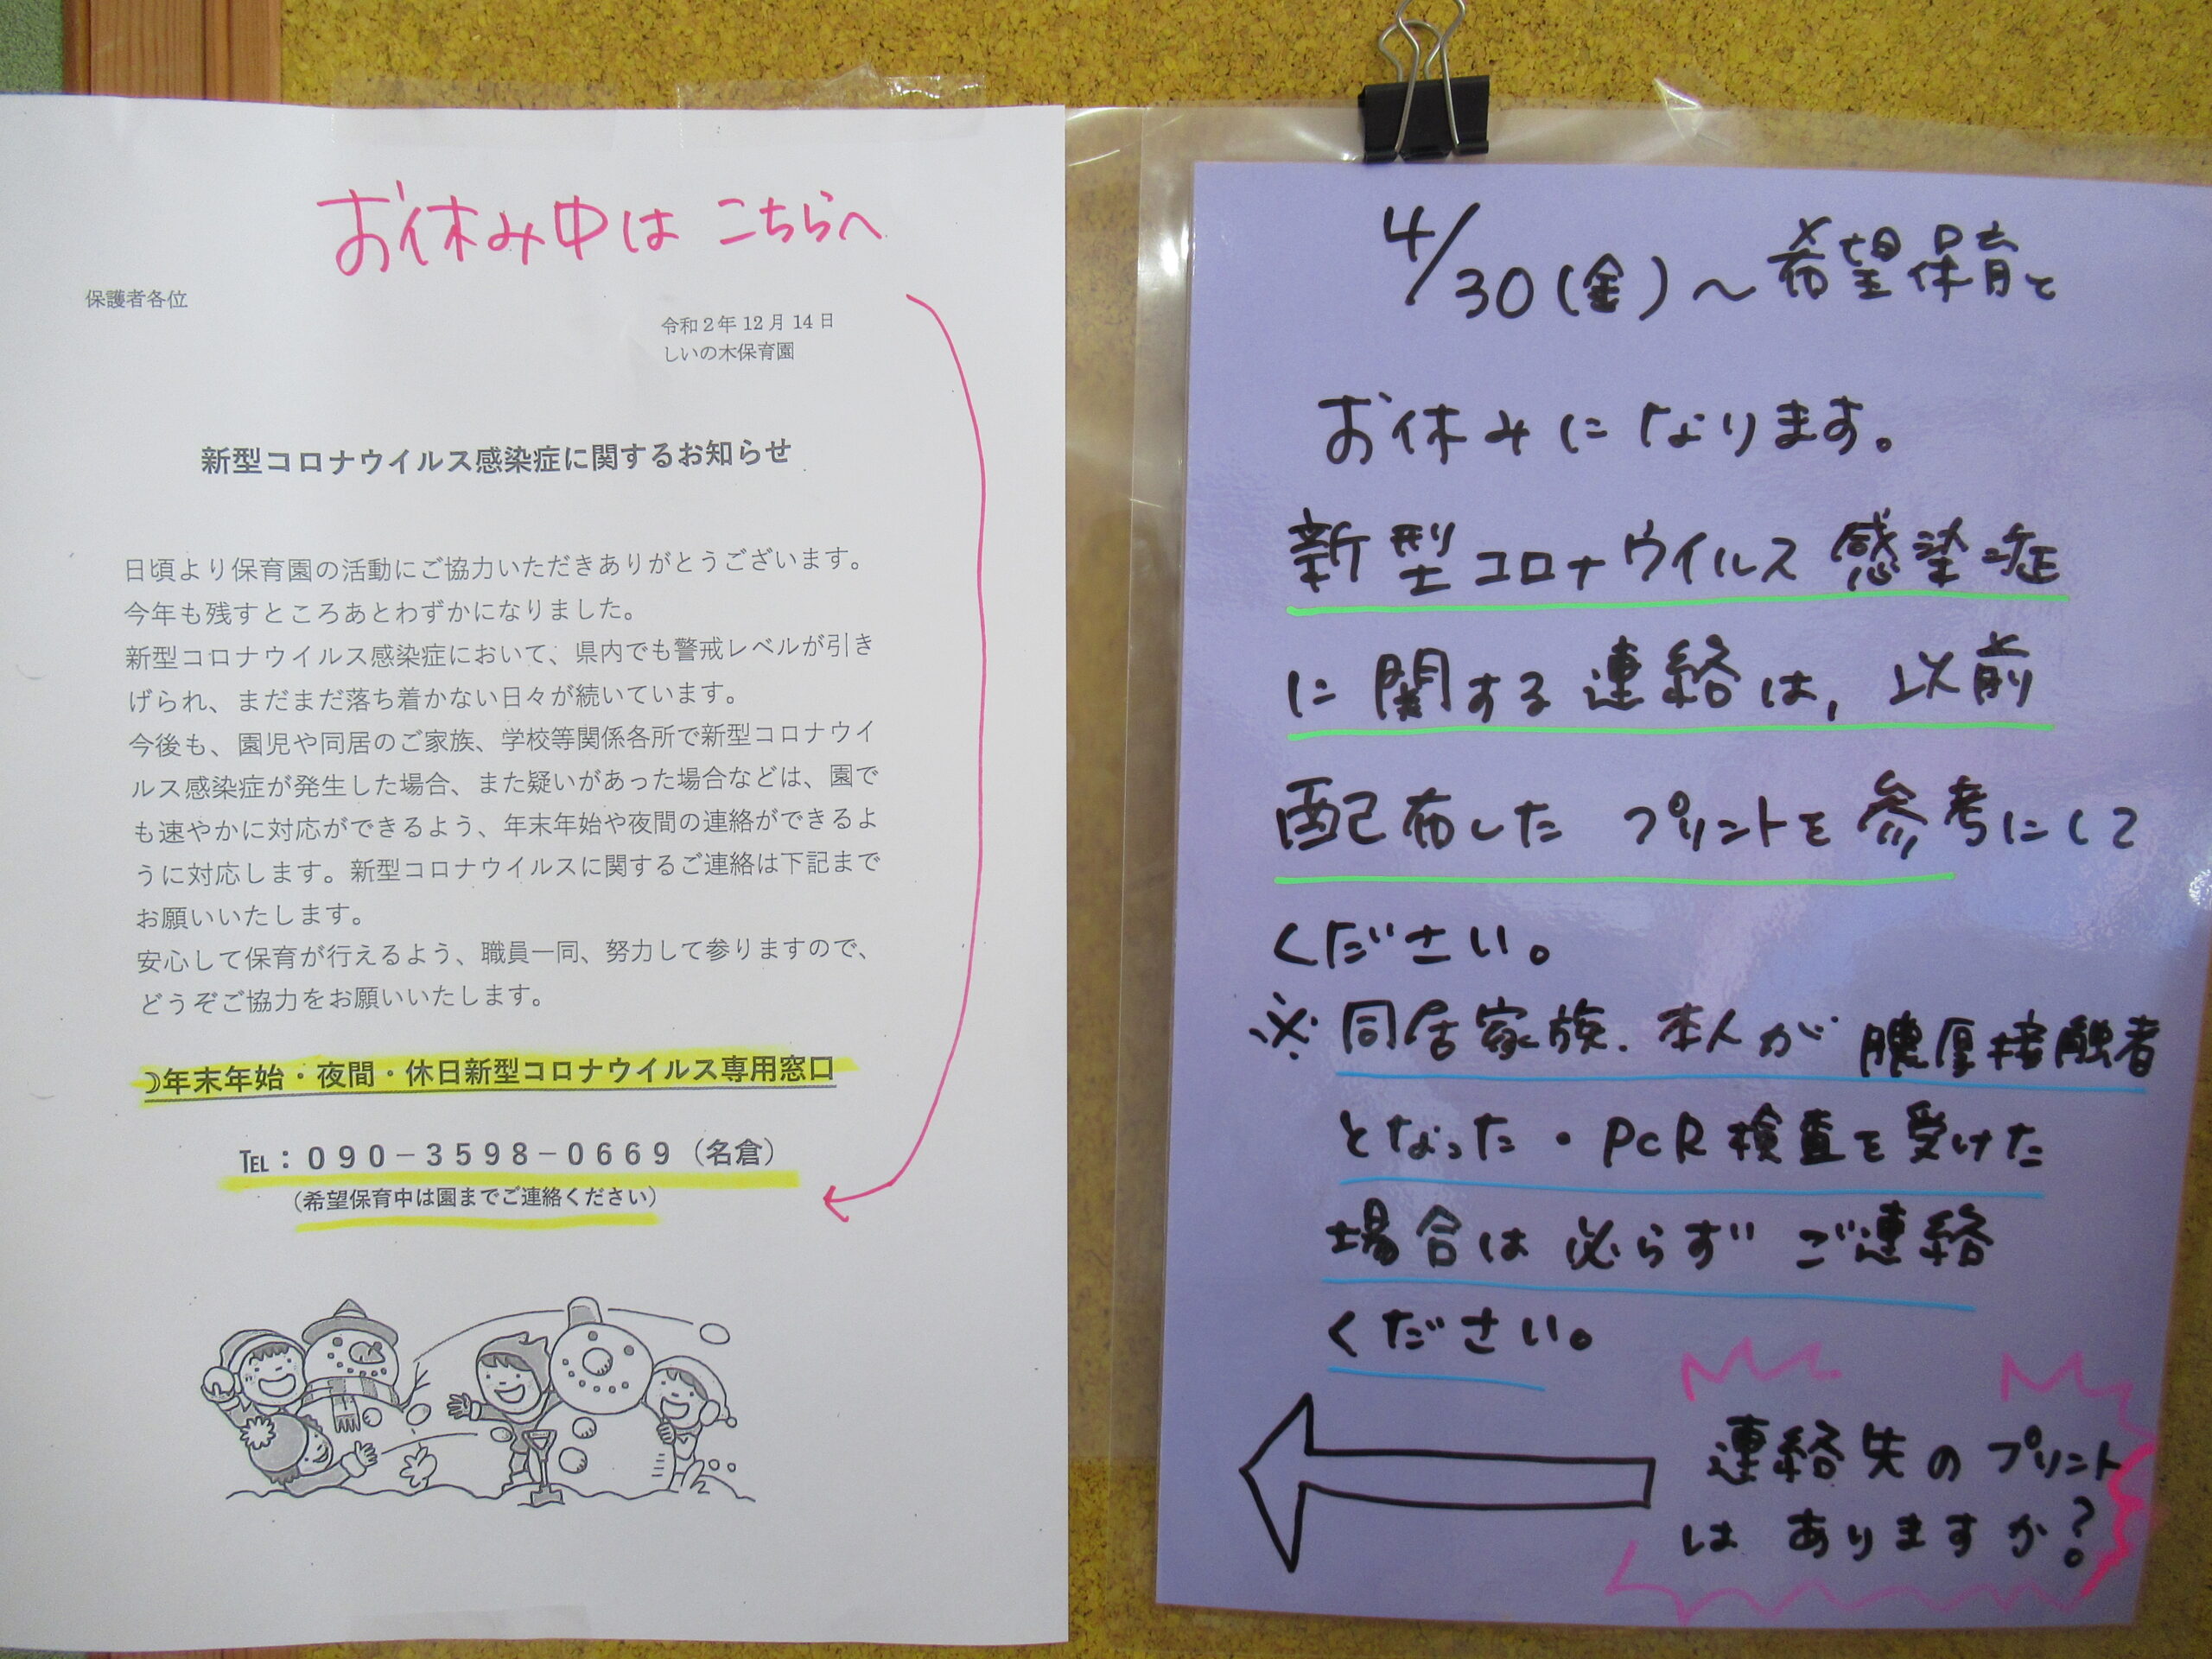 お休み中は こちらへ
保護者各位
令和2年12月14日
しいの木保育園
新型コロナウイルス感染症に関するお知らせ
日頃より保育園の活動にご協力いただきありがとうございます。
今年も残すところあとわずかになりました。
新型コロナウイルス感染症において、県内でも警戒レベルが引き
げられ、まだまだ落ち着かない日々が続いています。
今後も、園児や同居のご家族、学校等関係各所で新型コロナウイ
ルス感染症が発生した場合、また疑いがあった場合などは、園で
も速やかに対応ができるよう、年末年始や夜間の連絡ができるよ
うに対応します。新型コロナウイルスに関するご連絡は下記まで
お願いいたします。
安心して保育が行えるよう、職員一同、努力して参りますので、
どうぞご協力をお願いいたします。
☽年末年始・夜間・休日新型コロナウイルス専用窓口
℡：090－3598－0669（名倉）
（希望保育中は園までご連絡ください）
4/30(金)～希望保育と
お休みになります。
新型コロナウイルス感染症
に関する連絡は、以前
配布した プリントを参考にして
ください。
※同居家族、本人が 膿厚接触者
となった・PCR検査を受けた
場合は 必らず ご連絡
ください。
連絡先のプリント
は ありますか？